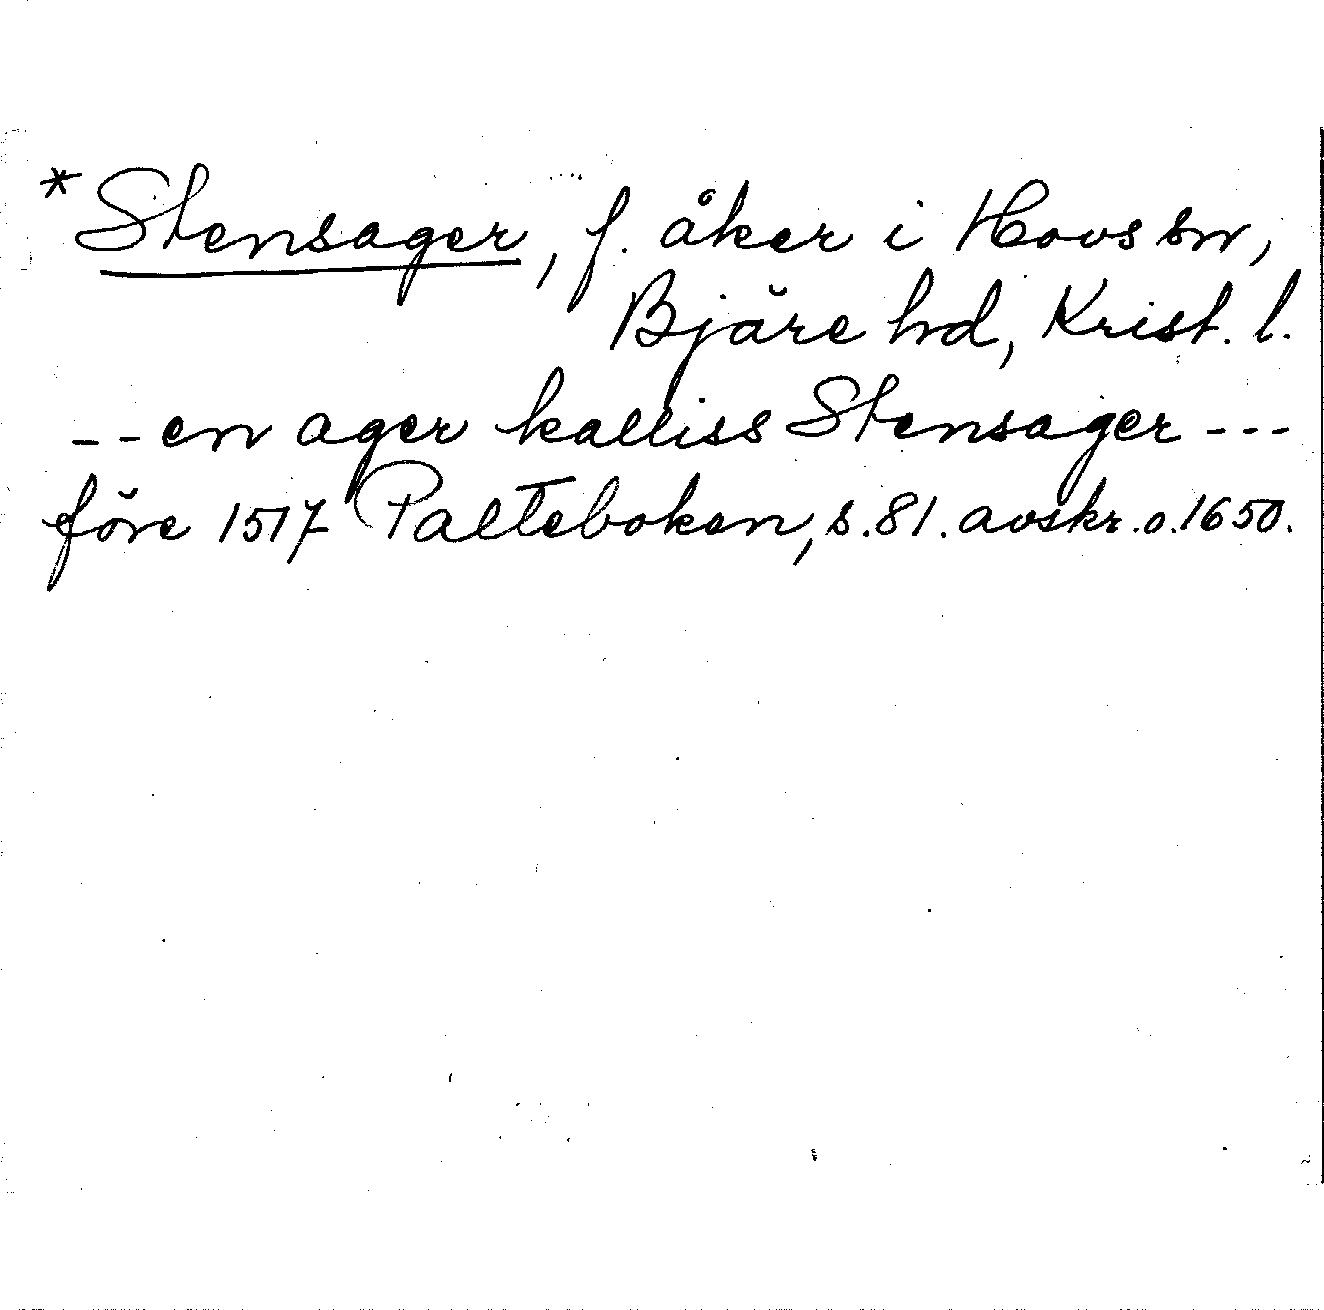 *Stensager, f. åker i Hovs sn,
Bjäre hd, Krist. l.
-- en ager kalliss Stensager ---
före 1517 Palteboken, s. 81. avskr. o. 1650.